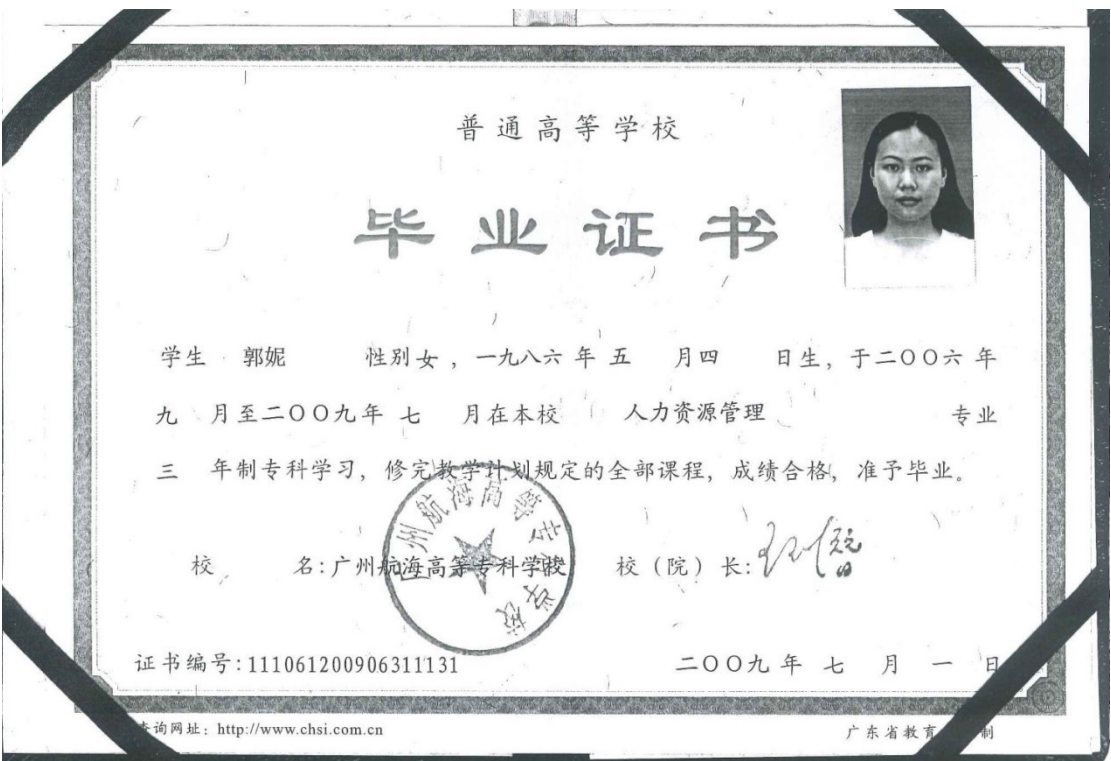 普通高等学校
毕业证书
学生 郭妮 性别女，一九八六年五 月四 日生，于二〇〇六年
九 月至二〇〇九年 七 月在本校 人力资源管理 专业
三 年制专科学习，修完教学计划规定的全部课程，成绩合格，准予毕业。
广州航海高等专科学校
校 名：广州航海高等专科学校 校（院）长：
证书编号：111061200906311131 二〇〇九年 七 月 一 日
查询网址：http://www.chsi.com.cn 广东省教育 制